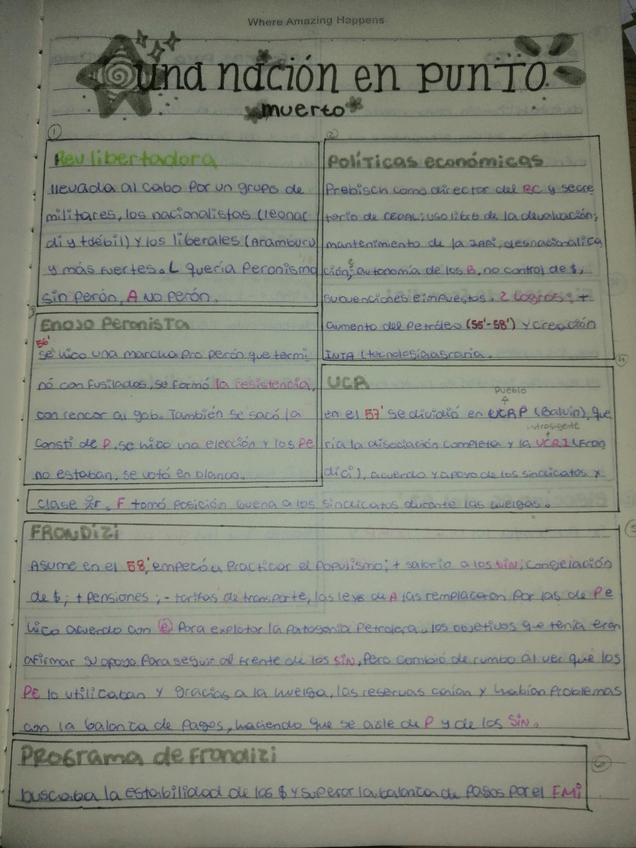 Where Amazing Happens
una nación en punto
muerto
①
Rev libertadora
llevada al cabo por un grupo de
militares, los nacionalistas (leonar
di y +débil) y los liberales (aramburu
y más fuertes. L quería Peronismo
sin perón, A no perón.
②
Políticas económicas
Prebisch como director del BC y secre
tario de CEPAL; uso libre de la devaluación;
mantenimiento de la IAPI, desnacionaliza
ción; autonomía de los B, no control de $,
subvenciones e impuestos. 2 Logros: +
aumento del Petróleo (55'-58') y creación
INTA (tecnología agraria.
Enojo Peronista
56'
se hizo una marcha pro perón que termi
nó con fusilados, se formó la resistencia,
con rencor al gob. También se sacó la
consti de P, se hizo una elección y los Pe
no estaban, se votó en blanco.
④
UCR
pueblo
en el 57' se dividió en UCRP (Balvin), que
intransigente
ría la disociación completa y la UCRI (Fron
dici), acuerdo y apoyo de los sindicatos y
clase tr. F tomó posición buena a los sindicatos durante las huelgas.
⑤
FRONDIZI
Asume en el 58', empezó a practicar el populismo; + salario a los SIN; congelación
de $; + pensiones; - tarifas de transporte, las leyes de A las remplazaron por las de Pe
hizo acuerdo con para explotar la patagonia petrolera. los objetivos que tenía eran
afirmar su apoyo para seguir al frente de los SIN, pero cambió de rumbo al ver que los
PE lo utilizaban y gracias a la huelga, las reservas caían y habían problemas
con la balanza de pagos, haciendo que se aisle de P y de los SIN.
⑥
Programa de Frondizi
buscaba la estabilidad de los $ y superar la balanza de pagos por el FMI